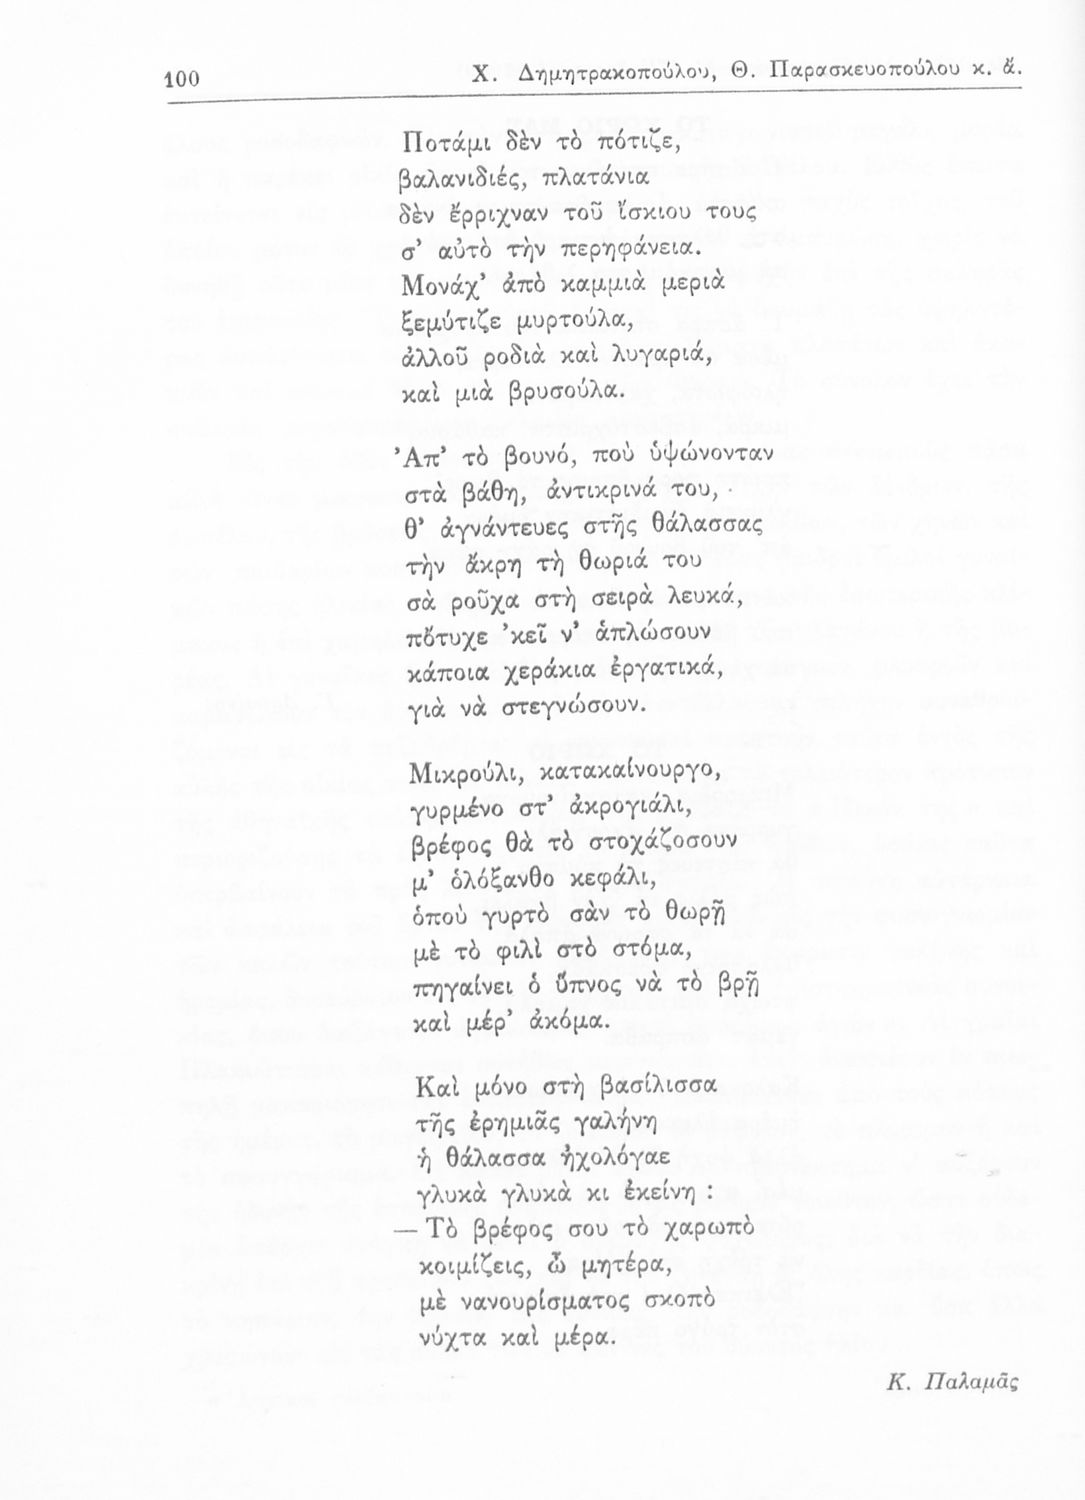 100
Χ. Δημητρακοπούλου, Θ. Παρασκευοπούλου κ. ἄ.
Ποτάμι δὲν τὸ πότιζε,
βαλανιδιές, πλατάνια
δὲν ἔρριχναν τοῦ ἴσκιου τους
σ’ αὐτὸ τὴν περηφάνεια.
Μονάχ’ ἀπὸ καμμιὰ μεριὰ
ξεμύτιζε μυρτούλα,
ἀλλοῦ ροδιὰ καὶ λυγαριά,
καὶ μιὰ βρυσούλα.
Ἀπ’ τὸ βουνό, ποὺ ὑψώνονταν
στὰ βάθη, ἀντικρινά του,
θ’ ἀγνάντευες στῆς θάλασσας
τὴν ἄκρη τὴ θωριά του
σὰ ροῦχα στὴ σειρὰ λευκά,
πὄτυχε ’κεῖ ν’ ἁπλώσουν
κάποια χεράκια ἐργατικά,
γιὰ νὰ στεγνώσουν.
Μικρούλι, κατακαίνουργο,
γυρμένο στ’ ἀκρογιάλι,
βρέφος θὰ τὸ στοχάζοσουν
μ’ ὁλόξανθο κεφάλι,
ὁποὺ γυρτὸ σὰν τὸ θωρῇ
μὲ τὸ φιλὶ στὸ στόμα,
πηγαίνει ὁ ὕπνος νὰ τὸ βρῇ
καὶ μέρ’ ἀκόμα.
Καὶ μόνο στὴ βασίλισσα
τῆς ἐρημιᾶς γαλήνη
ἡ θάλασσα ἠχολόγαε
γλυκὰ γλυκὰ κι ἐκείνη :
— Τὸ βρέφος σου τὸ χαρωπὸ
κοιμίζεις, ὦ μητέρα,
μὲ νανουρίσματος σκοπὸ
νύχτα καὶ μέρα.
Κ. Παλαμᾶς